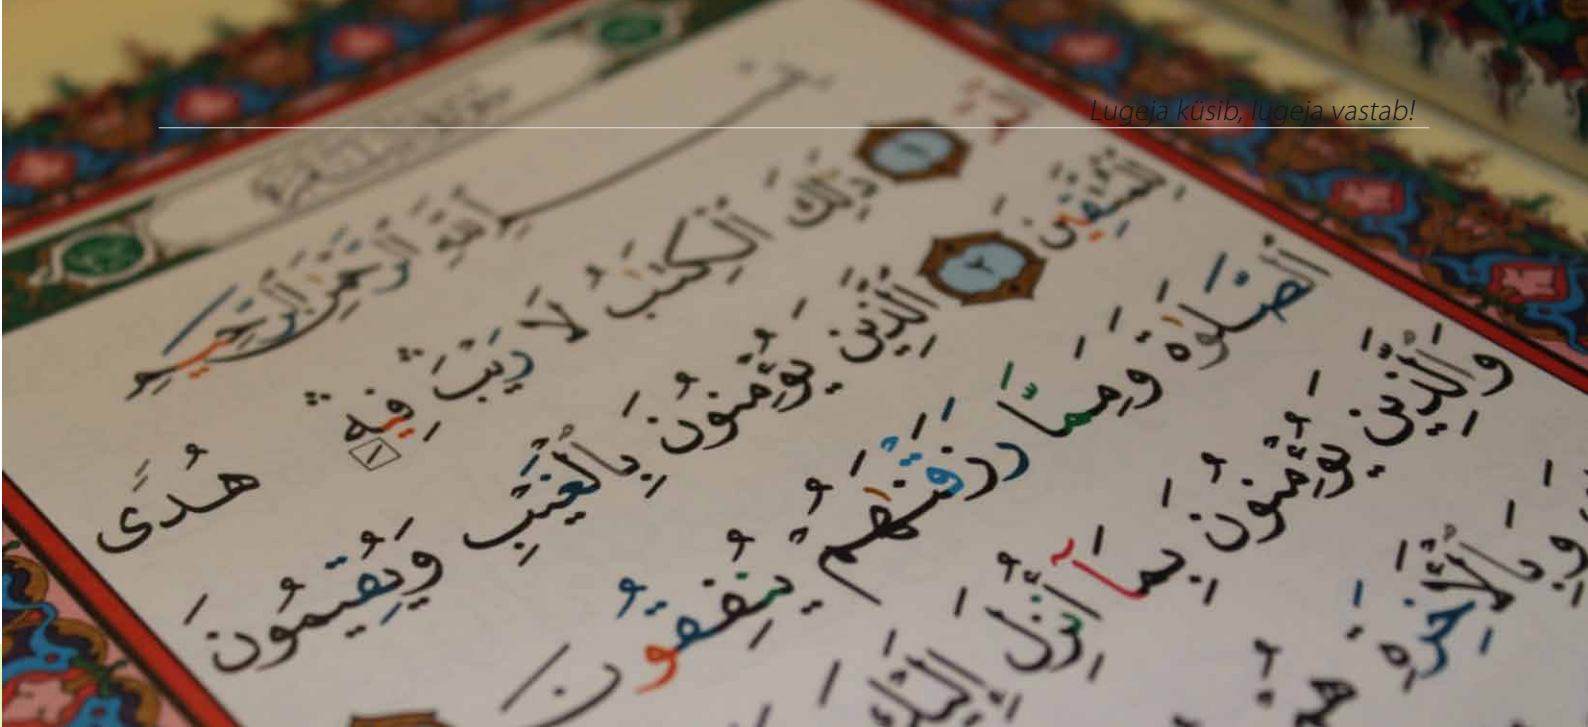 Lugeja küsib, lugeja vastab!
بِسْمِ ٱللَّهِ ٱلرَّحْمَٰنِ ٱلرَّحِيمِ
الٓمٓ ١ ذَٰلِكَ ٱلْكِتَٰبُ لَا رَيْبَ ۛ فِيهِ ۛ هُدًى
لِّلْمُتَّقِينَ ٢ ٱلَّذِينَ يُؤْمِنُونَ بِٱلْغَيْبِ وَيُقِيمُونَ
ٱلصَّلَوٰةَ وَمِمَّا رَزَقْنَٰهُمْ يُنفِقُونَ
وَٱلَّذِينَ يُؤْمِنُونَ بِمَآ أُنزِلَ إِلَيْكَ
وَبِٱلْأَخِرَةِ هُمْ